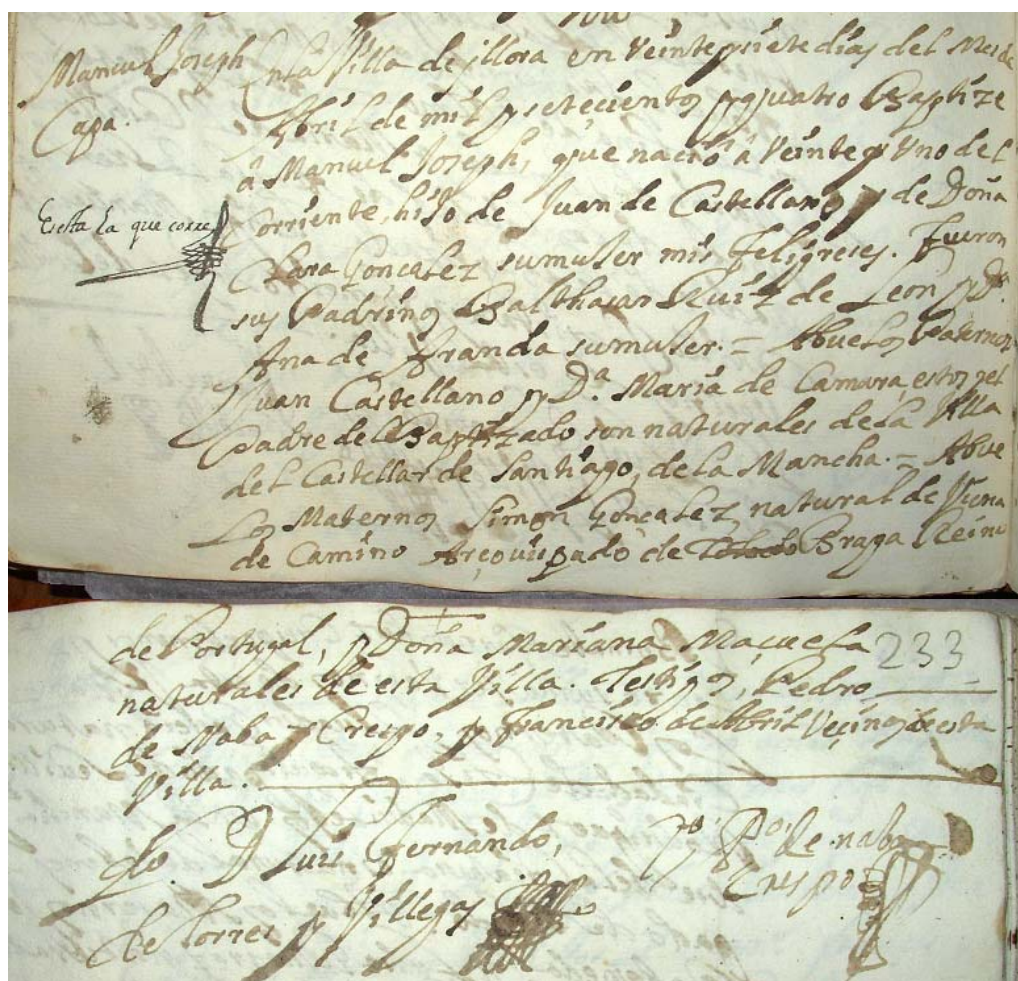 Manuel Joseph
Capa.
Esta es la que corre
En la Villa de jllora en Veinte y siete dias del Mes de
Abril de mil y setecientos y quatro Baptize
â Manuel Joseph, que naciô â Veinte y Uno del
Corriente, hijo de Juan de Castellano, y de Doña
Clara Gonçalez su muler mis feligreses. fueron
sus Padrinos Balthasar Ruiz de Leon y Dª.
Ana de Aranda su muler. = Abuelos Paternos
Juan Castellano y Dª. Maria de Camara, estos y el
Padre del Baptizado son naturales de la Villa
del Castellar de Santiago, de la Mancha. = Abue
los Maternos Simon Gonçalez natural de Viana
de Camino Arçouispado de Toledo Braga Reino
de Portugal, y Doña Mariana Maçuela 233
naturales de esta Villa. Testigos, Pedro
de Naba y Crespo, y francisco de Abril Veçinos de esta
Villa.
Do. D Luis Fernando,
de Torres y Villegas
Po. de naba
Crespo